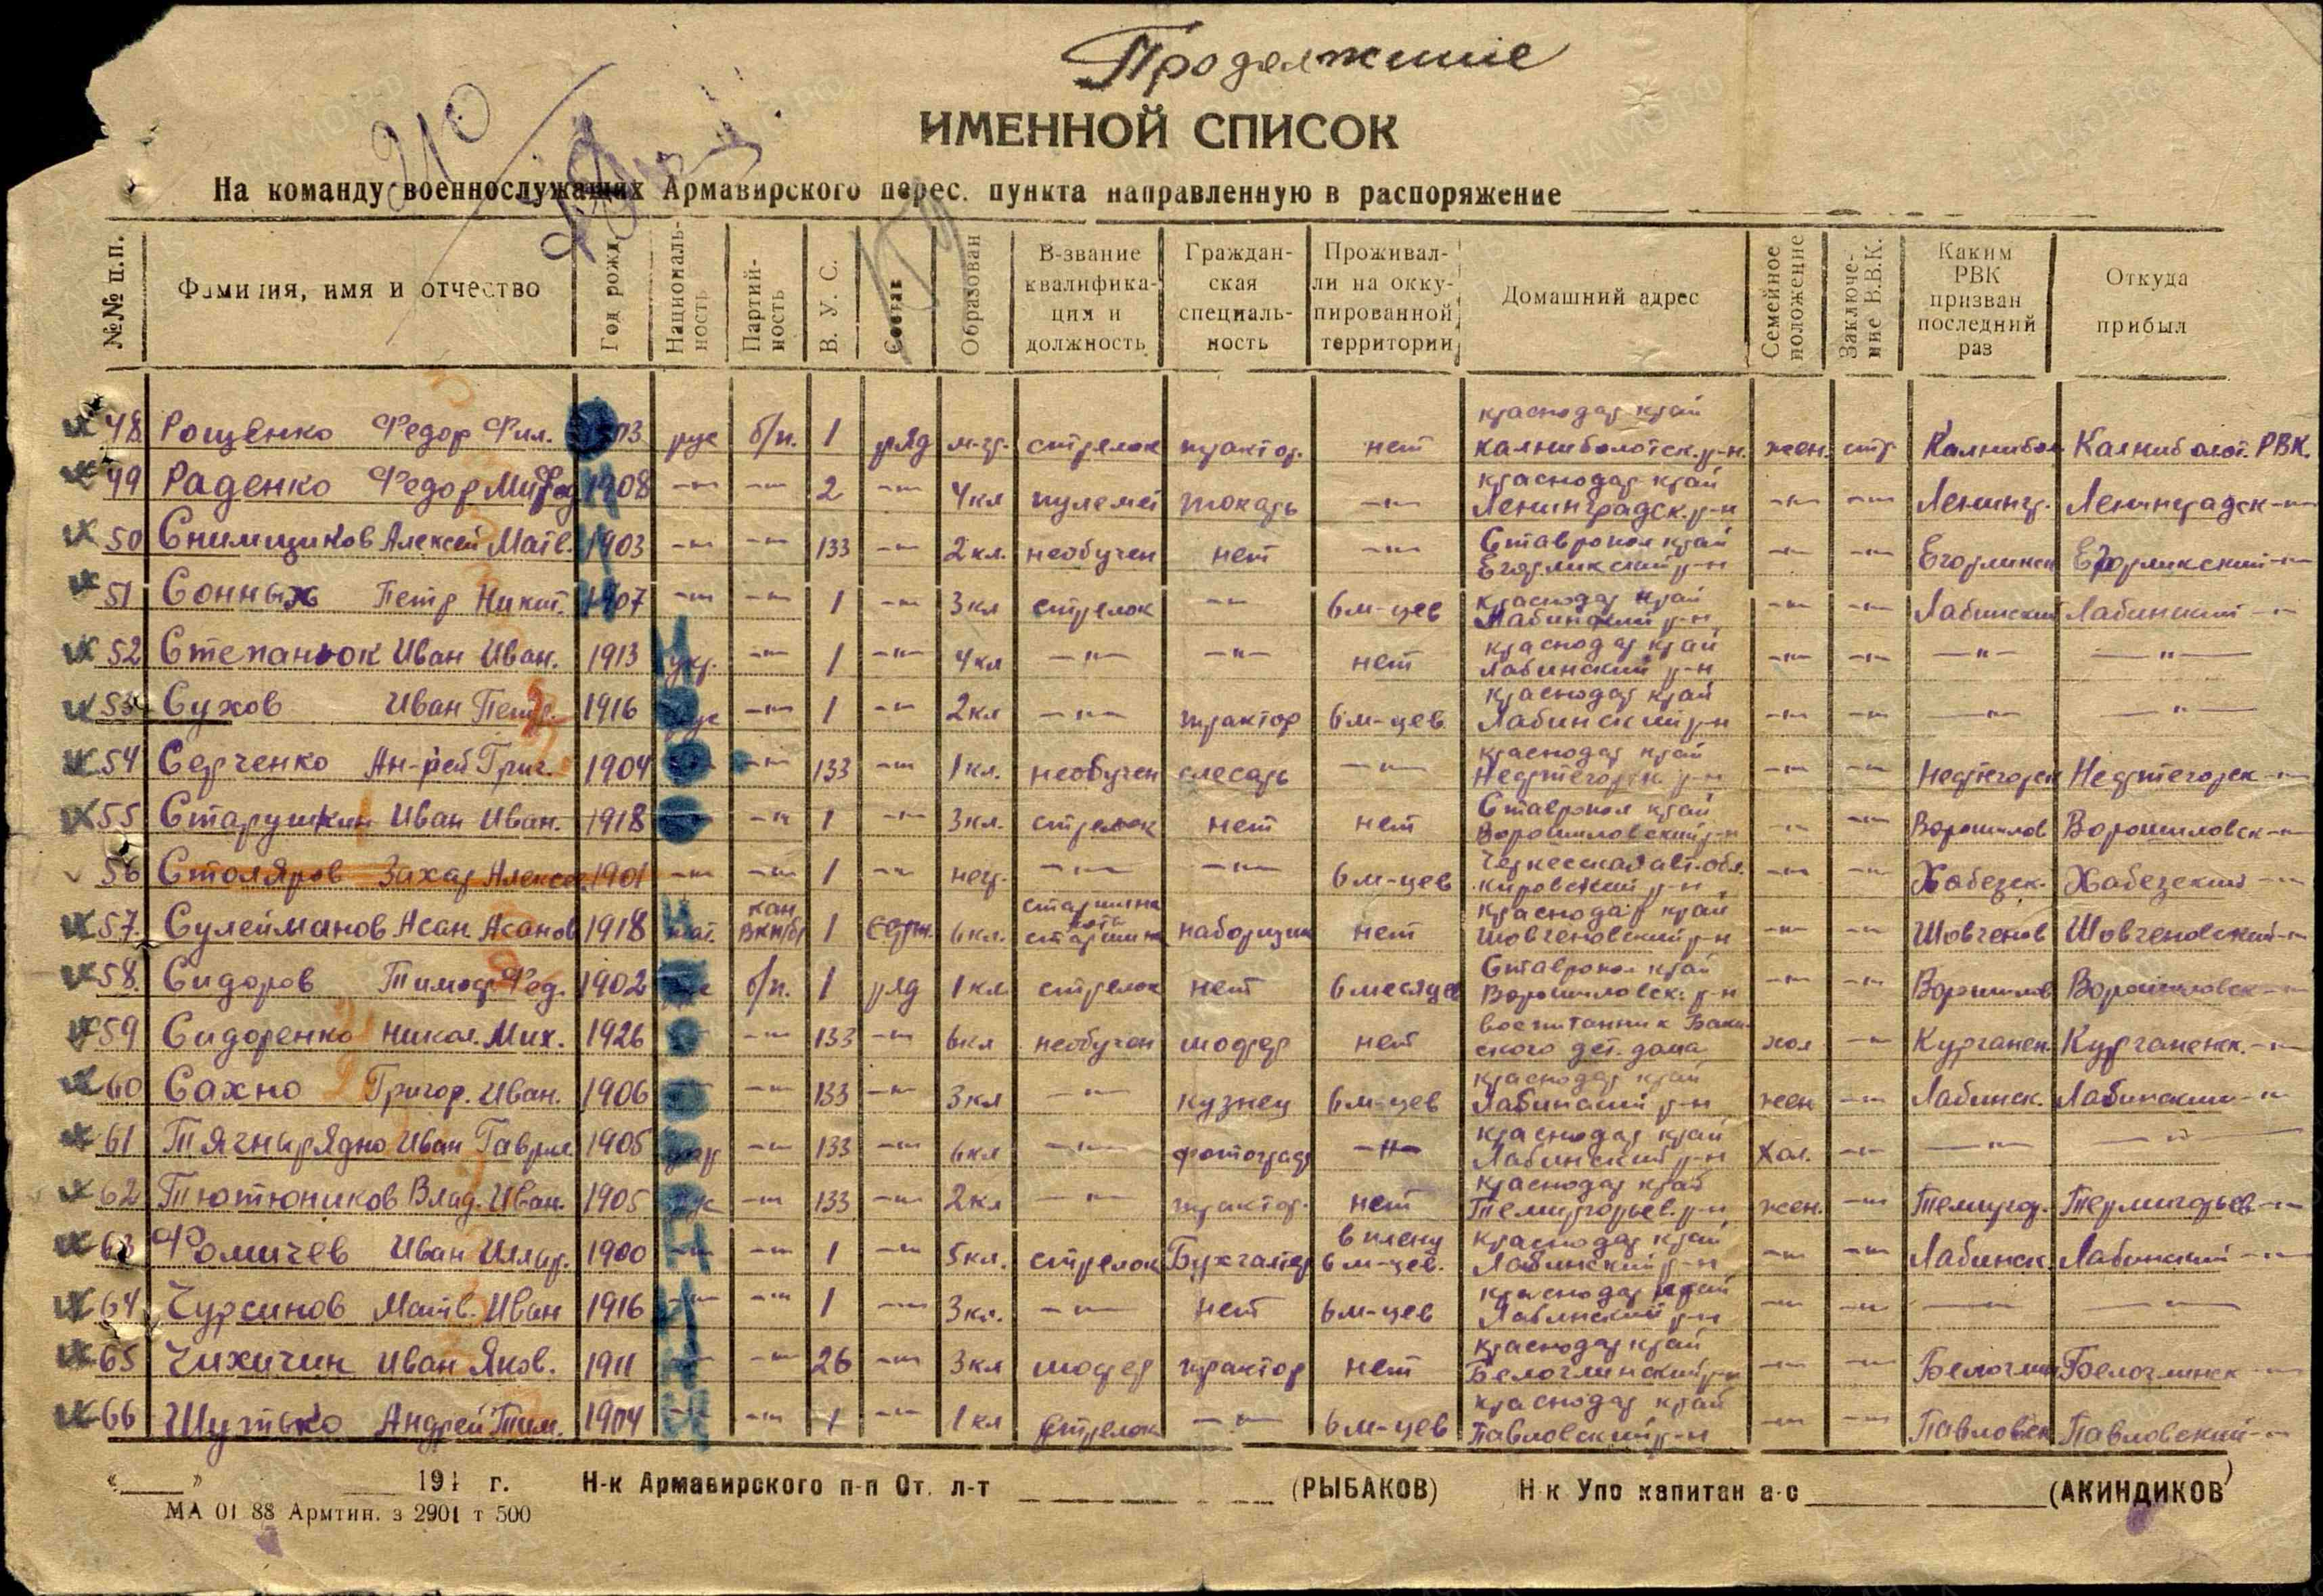 Продолжение
ИМЕННОЙ СПИСОК
На команду военнослужащих Армавирского перес. пункта направленную в распоряжение
№№ п.п. Фамилия, имя и отчество Год рожд. Националь-ность Партий-ность В. У. С. Состав Образован В-звание квалифика-ция и должность Граждан-ская специаль-ность Проживал-ли на окку-пированной территории Домашний адрес Семейное положение Заключе-ние В.В.К. Каким РВК призван последний раз Откуда прибыл
48 Рощенко Федор Фил. рус б/п. 1 ряд м-гр. стрелок трактор. нет Краснодар край Калниболотск. р-н. жен. стр Калнибол Калниболот. РВК.
49 Раденко Федор 1908 -"- -"- 2 -"- 4кл пулемет токарь -"- Краснодар край Ленинградск. р-н -"- -"- Ленингр. Ленинградск -"-
50 Снимщиков Алексей Матв. 1903 -"- -"- 133 -"- 2кл. необучен нет -"- Ставропол край Егорликский р-н -"- -"- Егорликск Егорликский -"-
51 Сонных Петр Никит. 1907 -"- -"- 1 -"- 3кл стрелок -"- 6 м-цев Краснодар край Лабинский р-н -"- -"- Лабинский Лабинский -"-
52 Степанюк Иван Иван. 1913 укр. -"- 1 -"- 4кл -"- -"- нет Краснодар край Лабинский р-н -"- -"- -"- -"-
53 Сухов Иван Петр. 1916 рус -"- 1 -"- 2кл -"- трактор 6 м-цев Краснодар край Лабинский р-н -"- -"- -"- -"-
54 Серченко Ан-рей Григ. 1904 -"- 133 -"- 1кл. необучен слесарь -"- Краснодар край Нефтегорск. р-н -"- -"- Нефтегорск Нефтегорск -"-
55 Старушкин Иван Иван. 1918 -"- 1 -"- 3кл. стрелок нет нет Ставропол край Ворошиловский р-н -"- -"- Ворошилов Ворошиловск -"-
56 Столяров Захар Алексе. 1901 -"- -"- 1 -"- негр. -"- -"- 6 м-цев Черкесская авт. обл. Кировский р-н -"- -"- Хабезск. Хабезский -"-
57. Сулейманов Асан Асанов 1918 тат. кан ВКП(б) 1 серж. 6кл. старшина старшина наборщик нет Краснодар край Шовгеновский р-н -"- -"- Шовгенов Шовгеновский -"-
58. Сидоров Тимоф Фед. 1902 б/п. 1 ряд 1кл стрелок нет 6 месяцев Ставропол край Ворошиловск. р-н -"- -"- Ворошилов Ворошиловск -"-
59 Сидоренко Никол. Мих. 1926 -"- 133 -"- 6кл необучен шофер нет воспитанник Баки-ского дет. дома хол -"- Курганен. Курганенск. -"-
60 Сахно Григор. Иван. 1906 -"- 133 -"- 3кл -"- кузнец 6 м-цев Краснодар край Лабинский р-н жен -"- Лабинск. Лабинский -"-
61 Тягнирядно Иван Гаврил 1905 укр -"- 133 -"- 6кл -"- фотограф -"- Краснодар край Лабинский р-н Хол. -"- -"- -"-
62 Тютюников Влад. Иван. 1905 рус -"- 133 -"- 2кл -"- трактор. нет Краснодар край Темиргорьев. р-н жен. -"- Темиргор. Термигорьев. -"-
63 Фомичев Иван 1900 -"- -"- 1 -"- 5кл. стрелок Бухгалтер в плену 6 м-цев. Краснодар край Лабинский р-н -"- -"- Лабинск. Лабинский -"-
64 Чурсинов Матв. Иван 1916 -"- -"- 1 -"- 3кл. -"- нет 6 м-цев Краснодар край Лабинский р-н -"- -"- -"- -"-
65 Чихичин Иван Яков. 1911 -"- -"- 26 -"- 3кл шофер трактор нет Краснодар край Белоглинский р-н -"- -"- Белоглин Белоглинск -"-
66 Шутько Андрей Тим. 1904 -"- -"- 1 -"- 1кл стрелок -"- 6 м-цев Краснодар край Павловский р-н -"- -"- Павловск Павловский -"-
«___» ___ 194 г. Н-к Армавирского п-п Ст. л-т (РЫБАКОВ) Н-к Упо капитан а-с (АКИНДИКОВ)
МА 01 88 Армтип. з 2901 т 500